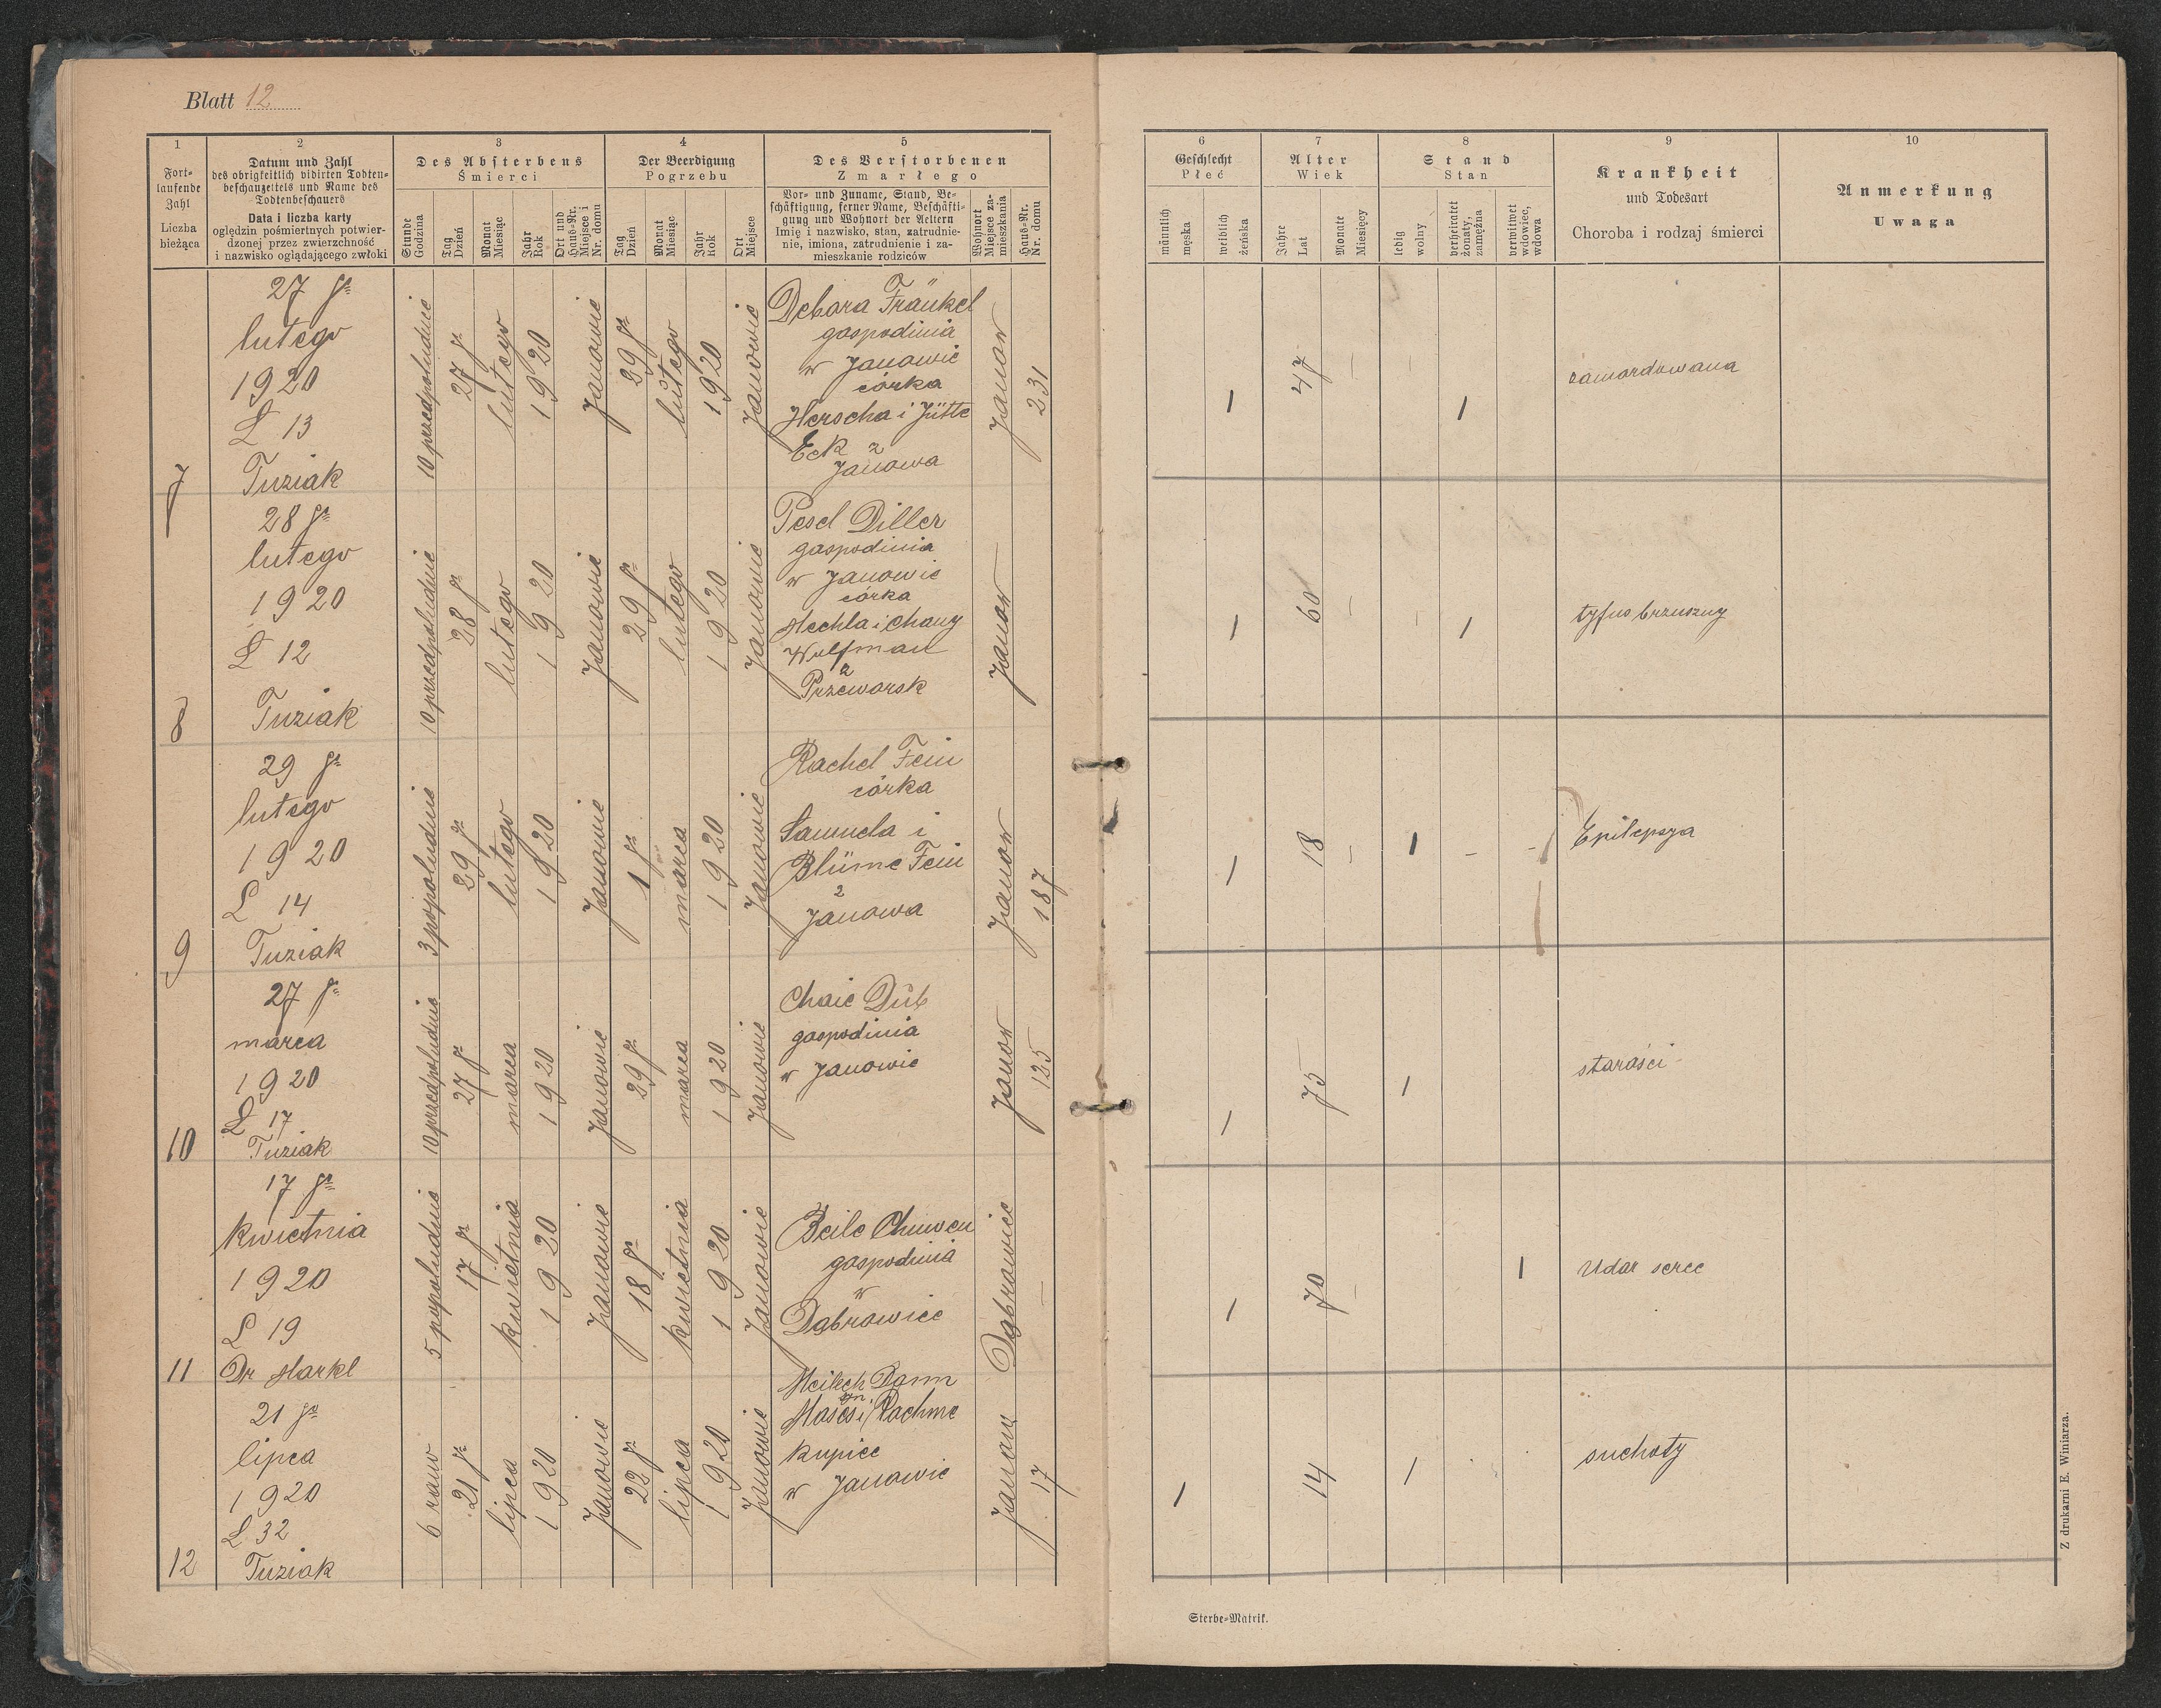 Blatt 12
1
Fort-
laufende
Zahl
Liczba
bieżąca
2
Datum und Zahl
des obrigkeitlich vidirten Todten-
beschauzettels und Name des
Todtenbeschauers
Data i liczba karty
oględzin pośmiertnych potwier-
dzonej przez zwierzchność
i nazwisko oglądającego zwłoki
3
Des Absterbens
Śmierci
Stunde
Godzina
Tag
Dzień
Monat
Miesiąc
Jahr
Rok
Ort und
Haus-Nr.
Miejsce i
Nr. domu
4
Der Beerdigung
Pogrzebu
Tag
Dzień
Monat
Miesiąc
Jahr
Rok
Ort
Miejsce
5
Des Verstorbenen
Zmarłego
Vor- und Zuname, Stand, Be-
schäftigung, ferner Name, Beschäfti-
gung und Wohnort der Aeltern
Imię i nazwisko, stan, zatrudnie-
nie, imiona, zatrudnienie i za-
mieszkanie rodziców
Wohnort
Miejsce za-
mieszkania
Haus-Nr.
Nr. domu
6
Geschlecht
Płeć
männlich
męska
weiblich
żeńska
7
Alter
Wiek
Jahre
Lat
Monate
Miesięcy
8
Stand
Stan
ledig
wolny
verheiratet
żonaty,
zamężna
verwitwet
wdowiec,
wdowa
9
Krankheit
und Todesart
Choroba i rodzaj śmierci
10
Anmerkung
Uwaga
7
27 go
lutego
1920
L 13
Tuziak
10 przedpołudnie
27 go
lutego
1920
Janowie
29 go
lutego
1920
Janowie
Debora Fränkel
gospodinia
w Janowie
córka
Herscha i Jütte
Eck z
Janowa
Janow
231
1
47
1
zamordowana
8
28 go
lutego
1920
L 12
Tuziak
10 przedpołudnie
28 go
lutego
1920
Janowie
29 go
lutego
1920
Janowie
Pesel Diller
gospodinia
w Janowie
córka
Mechla i Chany
Wulfman
z
Przeworsk
Janow
1
60
1
tyfus brzuszny
9
29 go
lutego
1920
L 14
Tuziak
3 popołudnie
29 go
lutego
1920
Janowie
1 go
marca
1920
Janowie
Rachel Fein
córka
Samuela i
Blüme Fein
z
Janowa
Janow
187
1
18
1
Epilepsya
10
27 go
marca
1920
L 17
Tuziak
10 przedpołudnie
27 go
marca
1920
Janowie
29 go
marca
1920
Janowie
Chaie Düb
gospodinia
w Janowie
Janow
125
1
75
1
starości
11
17 go
kwietnia
1920
L 19
Dr Markl
5 popołudnie
17 go
kwietnia
1920
Janowie
18 go
kwietnia
1920
Janowie
Beile
gospodinia
w
Dąbrowice
Dąbrowice
1
70
1
Udar serce
12
21 go
lipca
1920
L 32
Tuziak
6 rano
21 go
lipca
1920
Janowie
22 go
lipca
1920
Janowie
Meilech Dorm
syn
Moses i Rachme
kupiec
w Janowie
Janow
17
1
14
1
suchoty
Sterbe-Matrik.
Z drukarni E. Winiarza.